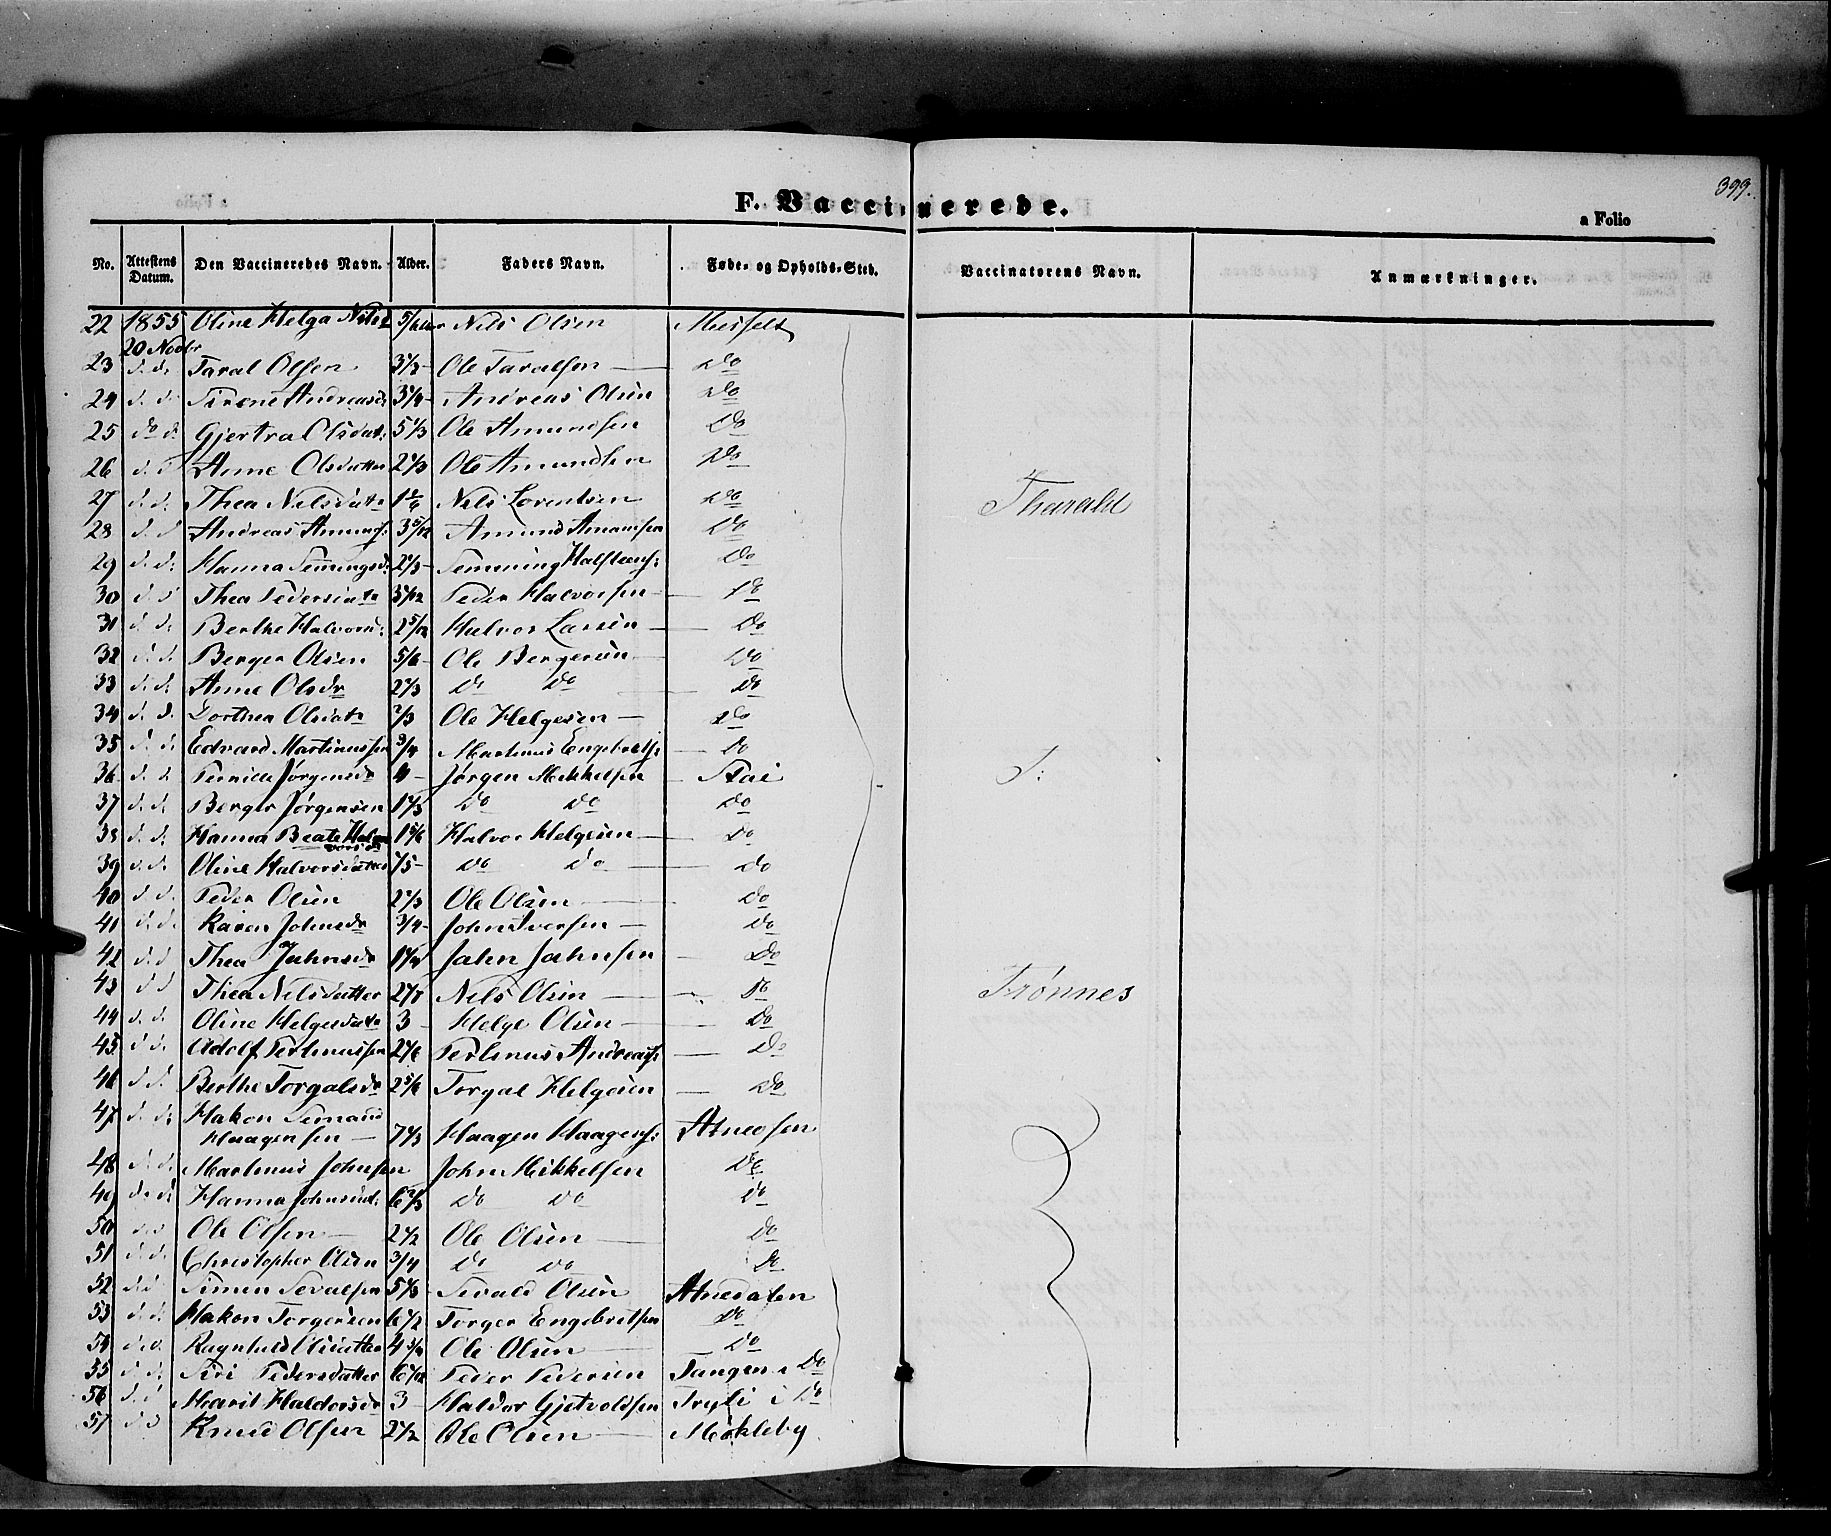 399.
F. Vaccinerede.
a Folio
No. Attestens Datum. Den Vaccineredes Navn. Alder. Faders Navn. Føde- og Opholds-Sted. Vaccinatorens Navn. Anmærkninger.
22 1855 Oline Helga Nilsd Nils Olsen Messelt
20 Novbr
23 d. d. Taral Olsen 3 1/3 Ole Taralsen Do
24 d. d. Andreas Olsen Do
25 do d. Gjertru Olsdat: 5 1/3 Ole Amundsen Do
26 d. d Anne Olsdatter 2 1/3 Ole Amundsen Do
27 d. d. Thea Nilsdatr 1 5/6 Nils Lorentsen Do
Tharald
28 d. d Andreas Amunds: 3 5/12 Amund Amundsen Do
29 d. d: Hanna Semmingsd: 2 1/3 Semming Halfteens: Do
30 d d Thea Pedersdatr Peder Halvorsen Do
31 d d. Berthe Halvorsd: 2 5/12 Halvor Larsen Do
32 d. d. Berger Olsen 5/6 Ole Bergersen Do
33 d. d. Anne Olsdr 2 1/3 Do Do Do
34 d. d. Dorthea Olsdatr 2/3 Ole Helgesen Do
35 d. d. Edvard Martinussen 3/4 Martinus Engebrets: Do
36 d. d. Pernille Jørgensdr 4 Jørgen Mikkelsen Stai
37 d. d. Berger Jørgensen 1 1/3 Do Do Do
38 d. d. Hanna Beate Hal
vorsdr 1 5/6 Halvor Helgesen Do
39 d. d. Oline Halvorsdatter Do Do Do
40 d d. Peder Olsen 2 1/3 Ole Olsen Do
41 d. d. Karen Johnsdr 3/4 John Iversen Do
42 d. d Thea Jahnsdr 1 1/4 Jahn Jahnsen Do
43 d d Thea Nilsdatter Nils Olsen Do
Trønnes
44 d. d. Oline Helgesdatr 3 Helge Olsen Do
45 d d. Adolf 2 1/6 Do
46 d. d. Berthe Torgalsdr 2 5/6 Torgal Helgesen Do
47 d. d. Hakon
Haagensen 7 1/3 Haagen Haagens: Atneosen
48 d. d. Martinus Johnsen John Mikkelsen Do
49 d. d. Hanna Johnsdat: 6 2/3 Do Do Do
50 d d Ole Olsen 2 1/2 Ole Olsen Do
51 d. d. Christopher Olsen 3/4 Do Do Do
52 d. d Simen Sevalsen 5 1/3 Sevald Olsen Atnedalen
53 d. d. Hakon Torgersen 6 1/2 Torger Engebretsen Do
54 d. d. Ragnhild Olsdatter 4 3/4 Ole Olsen Do
55 d. d. Siri Pedersdatter Peder Pedersen Tangen i Do
56 d. d Marit Haldorsdr 3 Haldor Gjetvoldsen i Do
57 d d Knud Olsen 2 1/2 Ole Olsen Mykleby